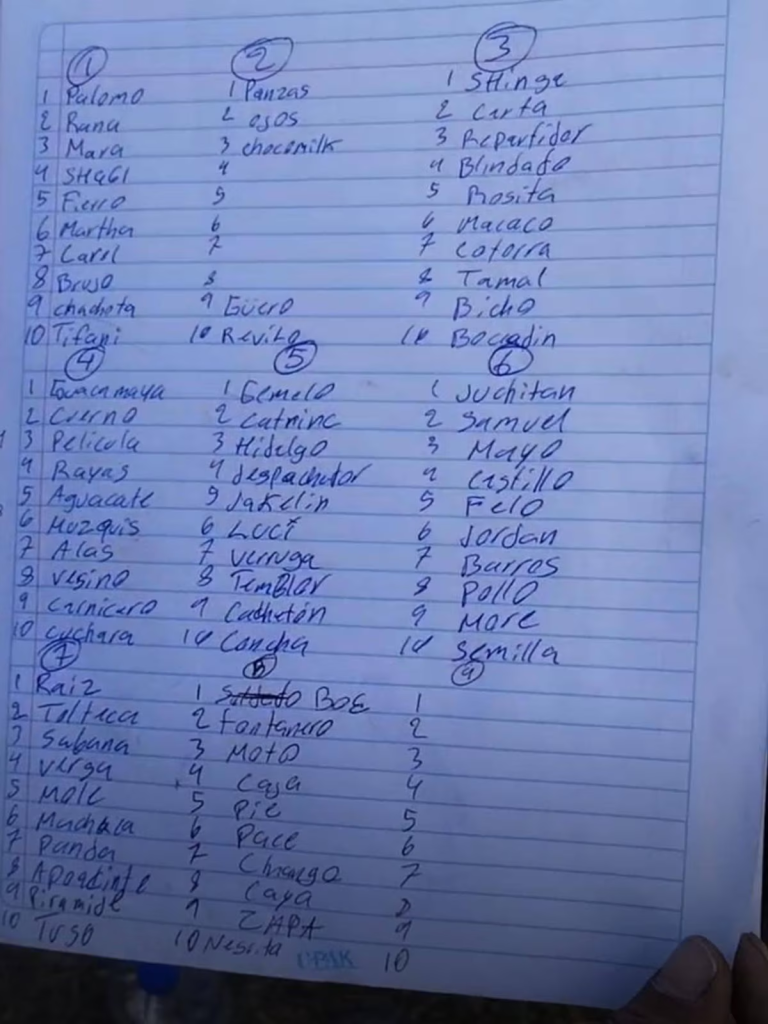 1 2 3
1 Palomo 1 Panzas 1 SHinge
2 Rana 2 OJOS 2 Carta
3 Mara 3 chocomilk 3 Repartidor
4 4 4 Blindado
5 Fierro 5 5 Rosita
6 Martha 6 6 Macaco
7 7 7 Cotorra
8 Brujo 8 8 Tamal
9 9 Güero 9 Bicho
10 Tifani 10 10
4 5 6
1 Guacamaya 1 Gemelo 1 Juchitan
2 Cuerno 2 2 Samuel
3 Pelicula 3 Hidalgo 3 Mayo
4 Rayas 4 despachador 4 Castillo
5 Aguacate 5 Jakelin 5 Felo
6 Muzquis 6 LUCI 6 Jordan
7 Alas 7 verruga 7 Barros
8 vesino 8 TemBlor 8 Pollo
9 Carnicero 9 Cachetón 9 More
10 cuchara 10 Concha 10 Semilla
7 8 9
1 Raiz 1 BOE 1
2 Tolteca 2 Fontanero 2
3 Sabana 3 MOTO 3
4 verga 4 Caja 4
5 Mole 5 Pie 5
6 6 Pace 6
7 Panda 7 Chango 7
8 8 Caya 8
9 Piramide 9 ZAPA 9
10 TUSO 10 Negrita 10